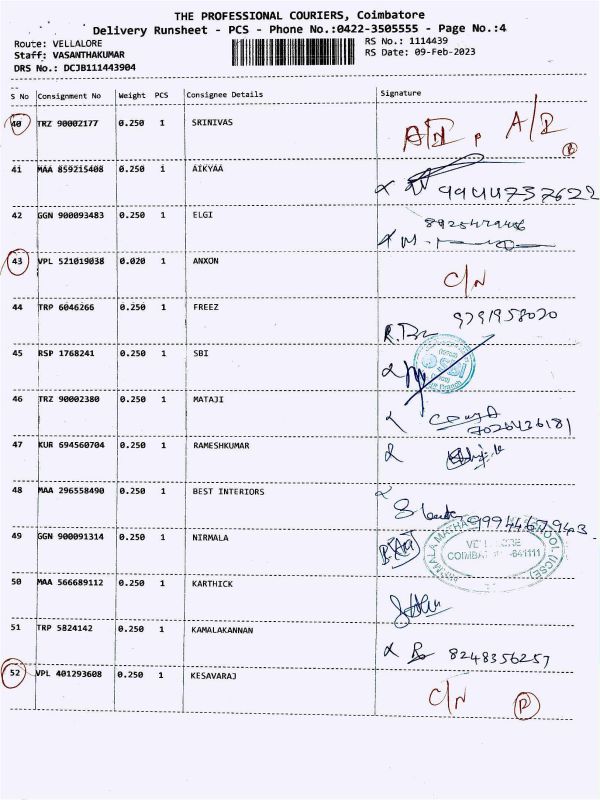 THE PROFESSIONAL COURIERS, Coimbatore
Delivery Runsheet - PCS - Phone No.:0422-3505555 - Page No.:4
Route: VELLALORE
RS No.: 1114439
Staff: VASANTHAKUMAR
RS Date: 09-Feb-2023
DRS No.: DCJB111443904
S No Consignment No Weight PCS Consignee Details Signature
40 TRZ 90002177 0.250 1 SRINIVAS
41 MAA 859215408 0.250 1 AIKYAA
9944737622
42 GGN 900093483 0.250 1 ELGI
43 VPL 521019038 0.020 1 ANXON C/N
44 TRP 6046266 0.250 1 FREEZ
9791958020
45 RSP 1768241 0.250 1 SBI
SBI
46 TRZ 90002380 0.250 1 MATAJI
47 KUR 694560704 0.250 1 RAMESHKUMAR
48 MAA 296558490 0.250 1 BEST INTERIORS
49 GGN 900091314 0.250 1 NIRMALA
50 MAA 566689112 0.250 1 KARTHICK
51 TRP 5824142 0.250 1 KAMALAKANNAN
8248356257
52 VPL 401293608 0.250 1 KESAVARAJ C/N